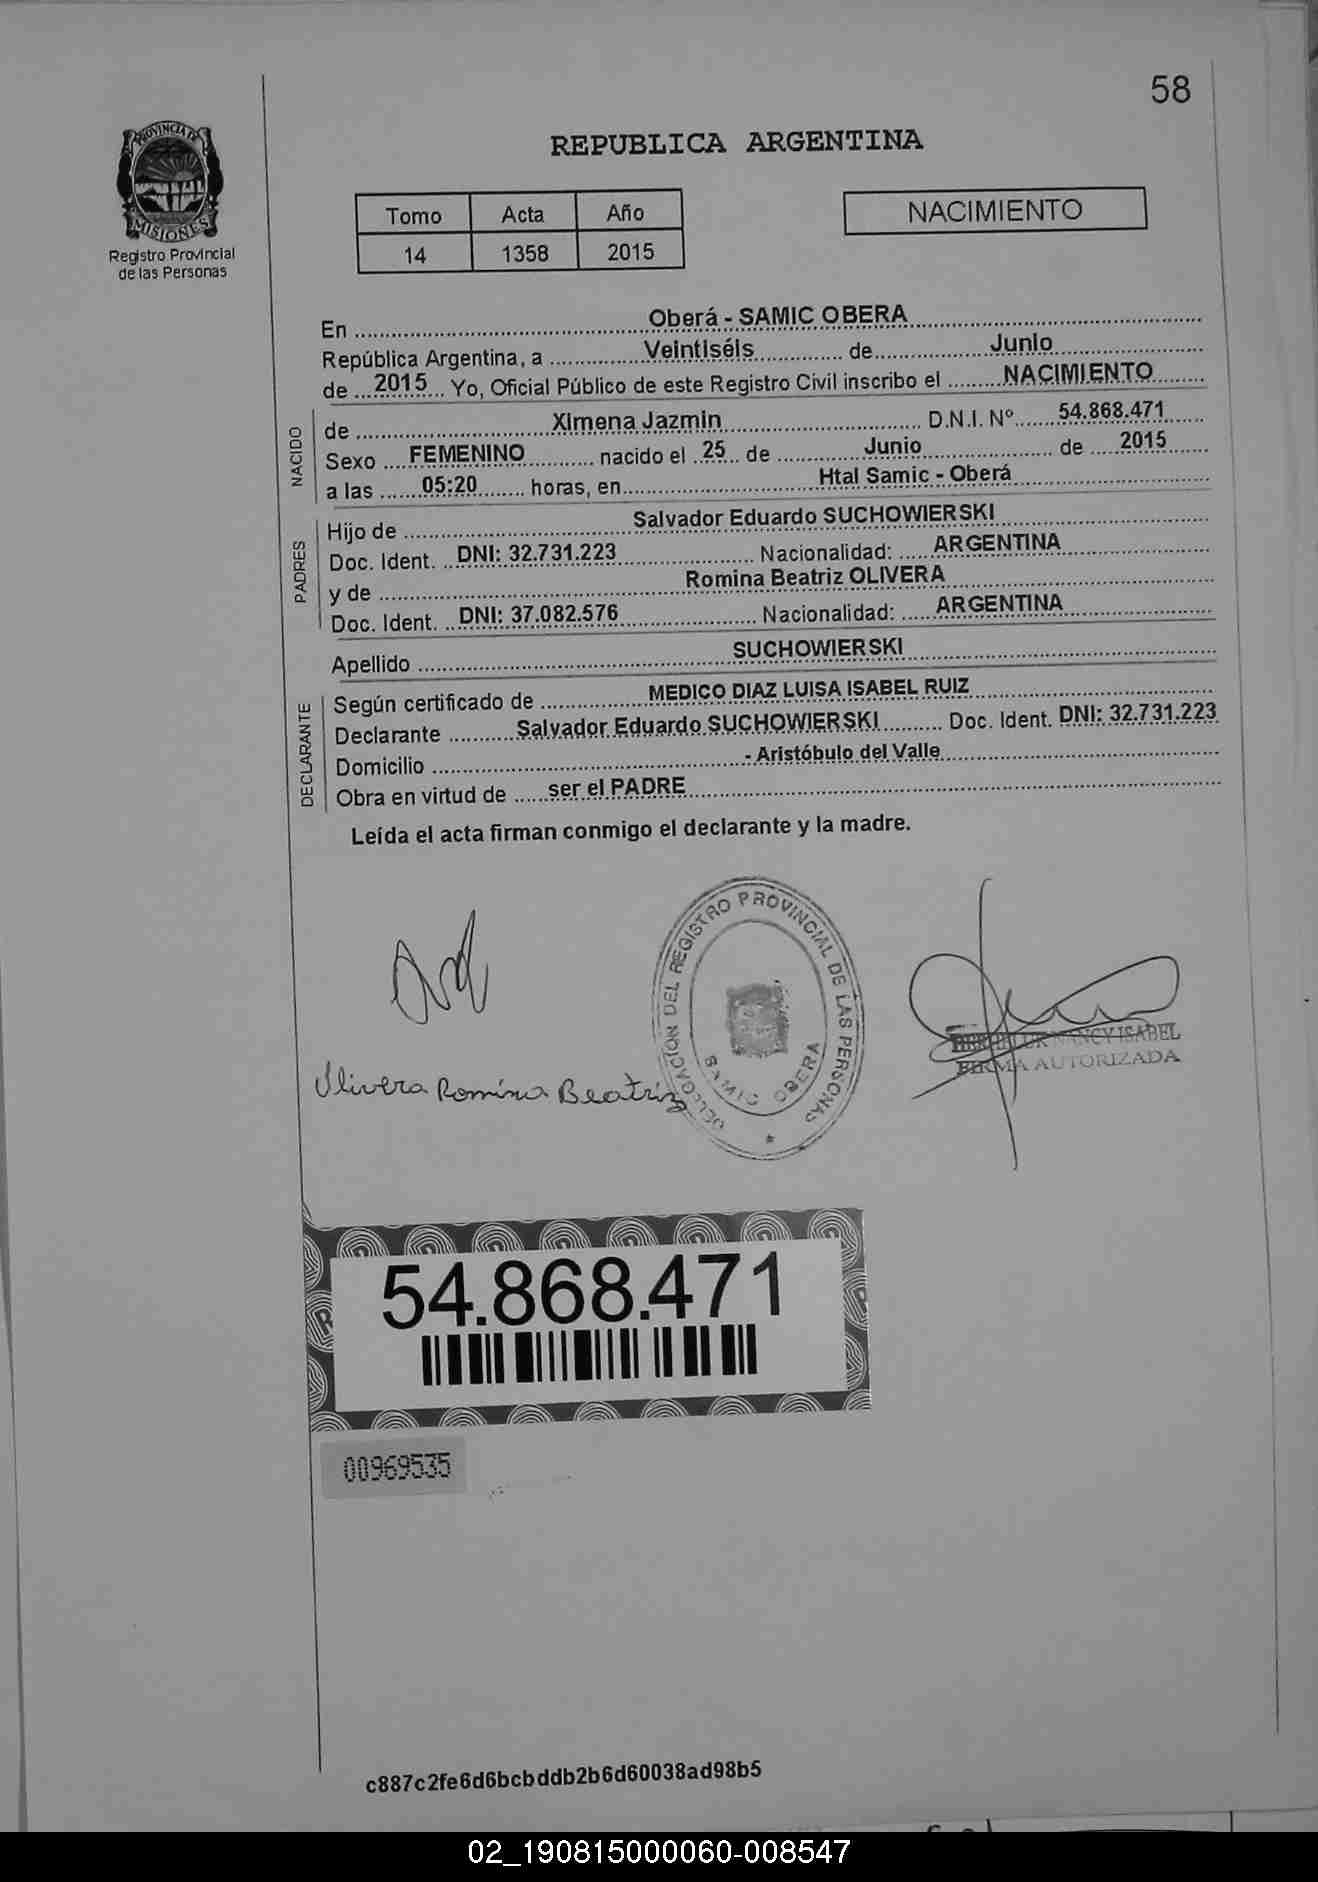 58
PROVINCIA DE
MISIONES
Registro Provincial
de las Personas
REPUBLICA ARGENTINA
Tomo Acta Año
14 1358 2015
NACIMIENTO
En Oberá - SAMIC OBERA
República Argentina, a Veintiséis de Junio
de 2015 Yo, Oficial Público de este Registro Civil inscribo el NACIMIENTO
NACIDO
de Ximena Jazmin D.N.I. Nº 54.868.471
Sexo FEMENINO nacido el 25 de Junio de 2015
a las 05:20 horas, en Htal Samic - Oberá
PADRES
Hijo de Salvador Eduardo SUCHOWIERSKI
Doc. Ident. DNI: 32.731.223 Nacionalidad: ARGENTINA
y de Romina Beatriz OLIVERA
Doc. Ident. DNI: 37.082.576 Nacionalidad: ARGENTINA
Apellido SUCHOWIERSKI
DECLARANTE
Según certificado de MEDICO DIAZ LUISA ISABEL RUIZ
Declarante Salvador Eduardo SUCHOWIERSKI Doc. Ident. DNI: 32.731.223
Domicilio - Aristóbulo del Valle
Obra en virtud de ser el PADRE
Leída el acta firman conmigo el declarante y la madre.
DELEGACION DEL REGISTRO PROVINCIAL DE LAS PERSONAS
SAMIC OBERA
NANCY ISABEL
FIRMA AUTORIZADA
Olivera Romina Beatriz
54.868.471
00969535
c887c2fe6d6bcbddb2b6d60038ad98b5
02_190815000060-008547